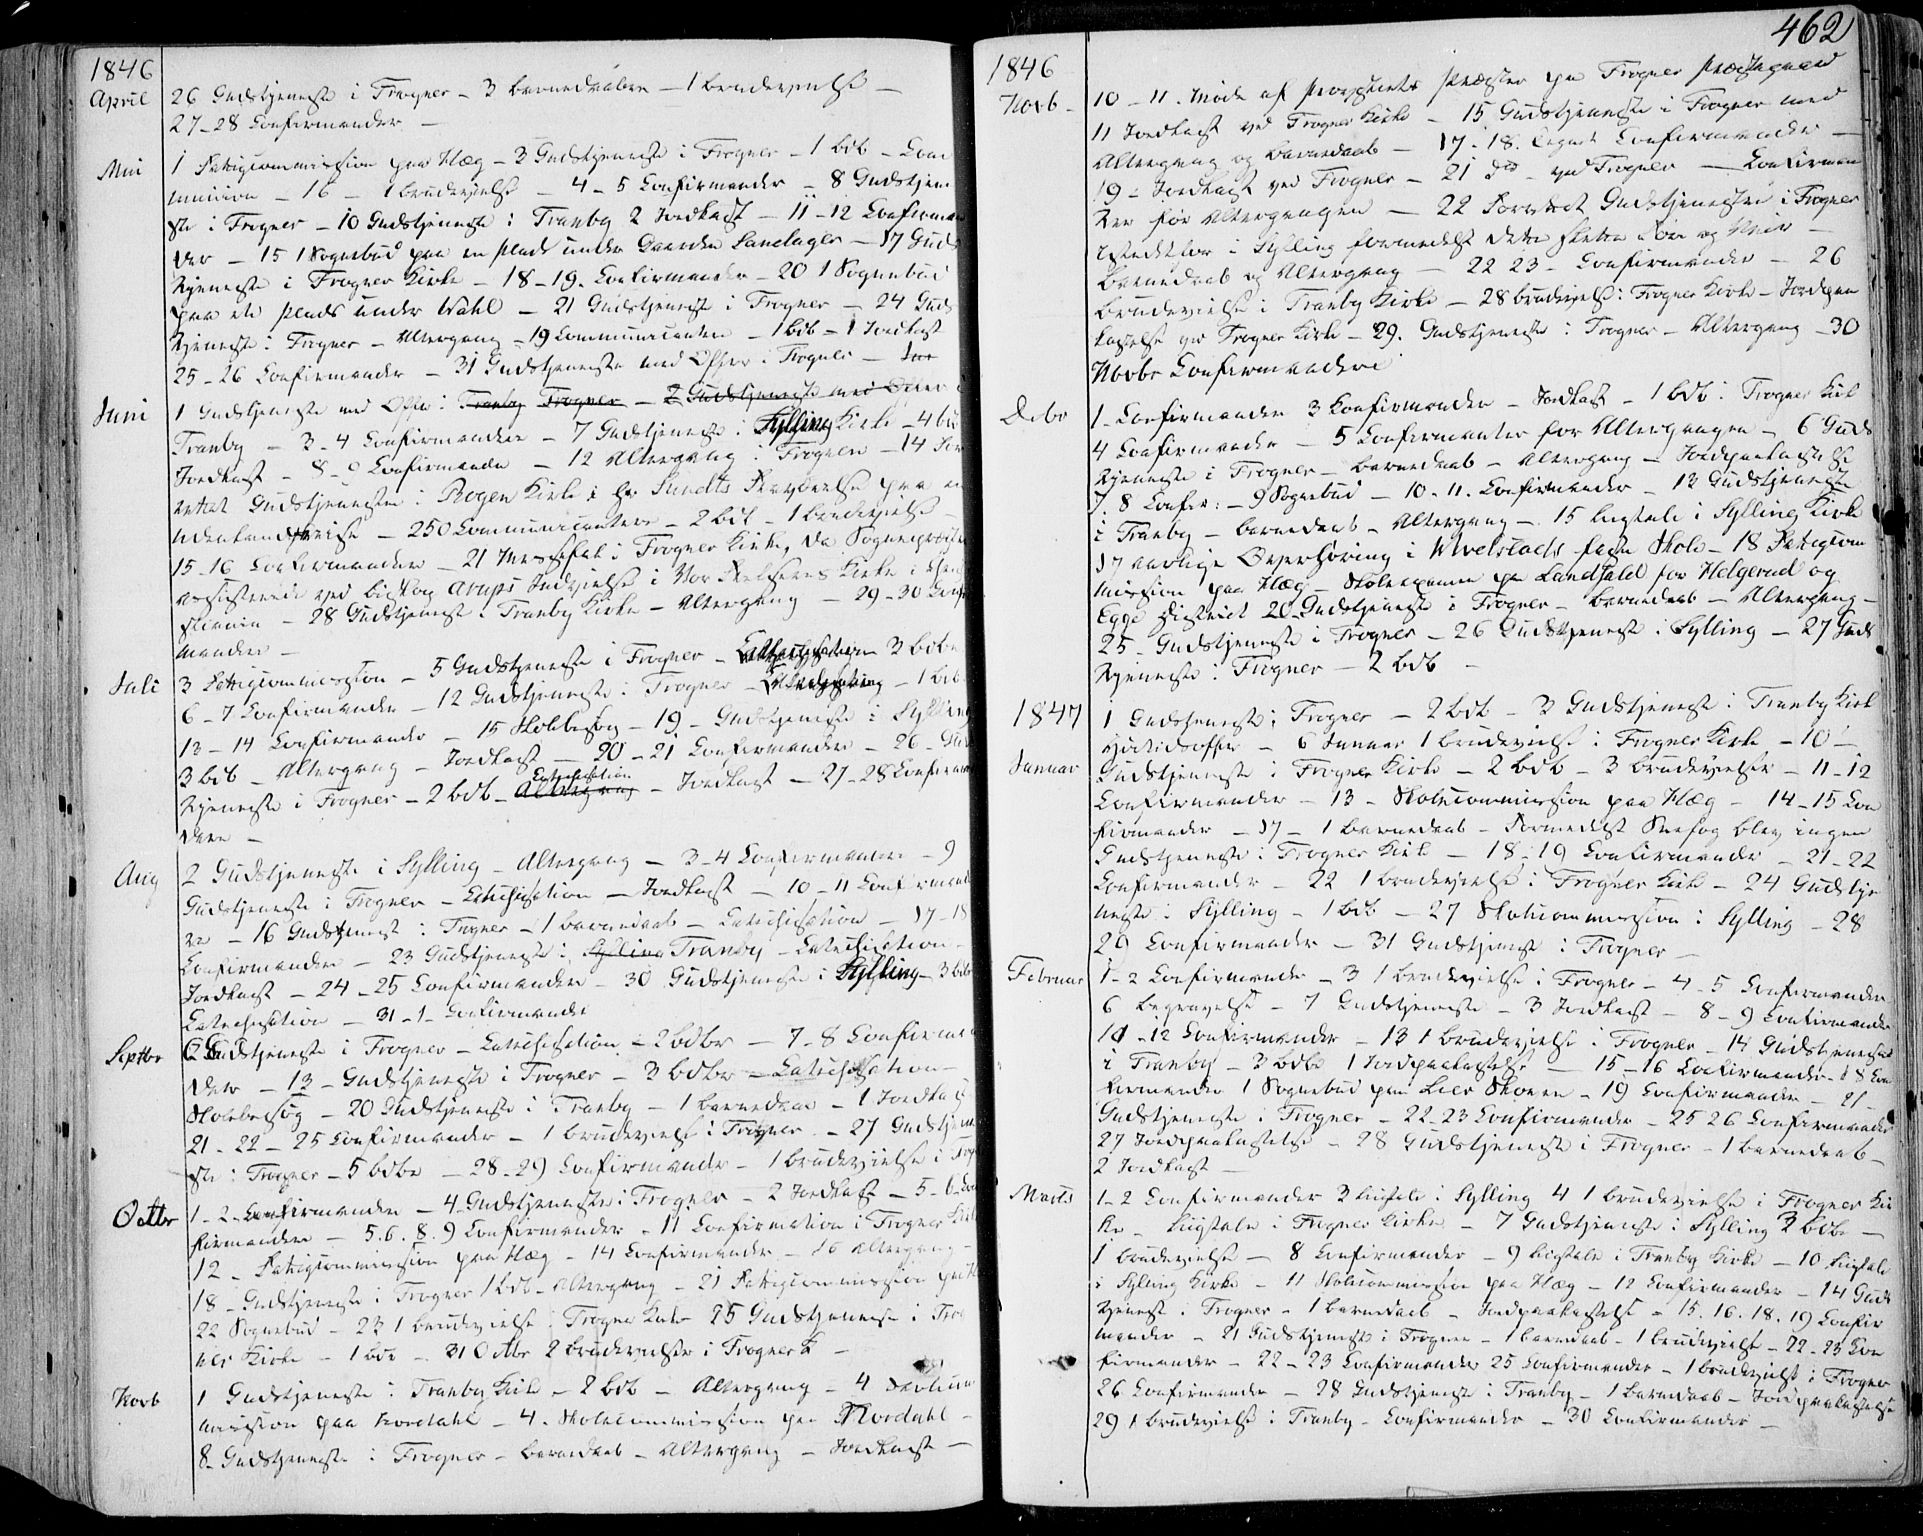 1846
April
26 Gudstjeneste i Frogner – 3 barnedaaben – 1 brudevielse –
27–28 Confirmander –
Mai
1 Fattigcommission paa Hæg – 3 Gudstjeneste i Frogner – 1 bdb – Com
munion – 16 – 1 brudevielse – 4–5 Confirmander – 8 Gudstjene
ste i Frogner – 10 Gudstjeneste i Tranby 2 Jordkast – 11–12 Confirman
der – 15 1 Sognebud paa en plads under Gaarden Landager – 17 Guds
tjeneste i Frogner Kirke – 18–19. Confirmander – 20 1 Sognebud
paa en plads under Wahl – 21 Gudstjeneste i Frogner – 24 Guds
tjeneste i Frogner – Altergang – 19 Communicanter – 1 bdb – 1 Jordkast
25–26 Confirmander – 31 Gudstjeneste med Offer i Frogner –
Juni
1 Gudstjeneste med Offer i Tranby Frogner – 2 Gudstjeneste med Offer i
Tranby – 3–4 Confirmander – 7 Gudstjeneste i Sylling Kirke – 4 bdb
Jordkast – 8–9 Confirmander – 12 Altergang i Frogner – 14 For
rettet Gudstjenesten i Røgen Kirke i Hr Sundts Fraværelse paa en
Udenlandsreise – 250 Communicantere – 2 bdb – 1 brudevielse –
15–16 Confirmander – 21 Messefal i Frogner Kirke, da Sognepræsten
assisterede ved biskop Arups Indvielse i Vor Frelseres Kirke i Chri
stiania – 28 Gudstjeneste i Tranby Kirke – Altergang – 29–30 Confir
mander –
Juli
3 Fattigcommission – 5 Gudstjeneste i Frogner – Catechisation 3 bdbe
6–7 Confirmander – 12 Gudstjeneste i Frogner – – 1 bdb
13–14 Confirmander – 15 Skolebesøg – 19 – Gudstjeneste i Sylling
3 bdb – Altergang – Jordkast – 20–21 Confirmander – 26 – Guds
tjeneste i Frogner – 2 bdb – Altergang Catechisation – Jordkast – 27–28 Confirman
dere –
Aug
2 Gudstjeneste i Sylling – Altergang – 3–4 Confirmandere – 9
Gudstjeneste i Frogner – Catechisation – Jordkast – 10–11 Confirmande
re – 16 Gudstjeneste i Frogner – 1 barnedaab – Catechisation – 17–18
Confirmander – 23 Gudstjeneste i Sylling Tranby – Catechisation –
Jordkast – 24–25 Confirmander – 30 Gudstjeneste i Sylling – 3 bdb
Catechisation – 31–1– Confirmander
Septbr
6 Gudstjeneste i Frogner – Catechisation – 2 bdbe – 7–8 Confirman
der – 13 – Gudstjeneste i Frogner – 3 bdbe – Catechisation –
Skolebesøg – 20 Gudstjeneste i Tranby – 1 barnedaab – 1 Jordkast
21–22–25 Confirmander – 1 brudevielse i Frogner – 27 Gudstjene
ste i Frogner – 5 bdbe – 28–29 Confirmander – 1 brudevielse i Frogn
Octbr
1–2– Confirmander – 4 – Gudstjeneste i Frogner – 2 Jordkast – 5–6– Con
firmander – 5. 6. 8. 9 Confirmander – 11 Confirmation i Frogner Kirke
12 – Fattigcommission paa Hæg – 14 Confirmander – 16 Altergang –
18 – Gudstjeneste i Frogner 1 bdb – Altergang – 21 Fattigcommission paa H
22 Sognebud – 23 1 brudevielse i Frogner Kirke 25 Gudstjeneste i Frog
ner Kirke – 1 bdb – 31 Octbr 2 brudevielser i Frogner K –
Novb
1 Gudstjeneste i Tranby Kirke – 2 bdb – Altergang – 4 Skolecom
mission paa Nordahl – 4. Skolecommission paa Nordahl –
8 – Gudstjeneste i Frogner – barnedaab – Altergang – Jordkast –
462
1846
Novb –
10–11. Møde af Provstiets Præster paa Frogner Præstegaard
11 Jordkast ved Frogner Kirke – 15 Gudstjeneste i Frogner med
Altergang og barnedaab – 17–18. Confirmander –
19 – Jordkast ved Frogner – 21 Do – ved Frogner – Confirman
der før Altergangen – 22 Forrettet Gudstjeneste i Frogner
istedetfor i Sylling formedelst Føre og Veir –
barnedaab og Altergang – 22 23 – Confirmander – 26
brudevielse i Tranby Kirke – 28 brudevielse i Frogner Kirke – Jordpaa
kastelse ved Frogner Kirke – 29. Gudstjeneste i Frogner – Altergang – 30
Novbr Confirmandere
Debr
1 – Confirmander 3 Confirmander – Jordkast – 1 bdb i Frogner Kirk
4 Confirmander – 5 Confirmanter for Altergangen – 6 Guds
tjeneste i Frogner – barnedaab – Altergang – Jordpaakastelse
7. 8 Confir: – 9 Sognebud – 10. 11. Confirmander – 13 Gudstjeneste
i Tranby – barnedaab – Altergang – 15 Ligtale i Sylling Kirke
17 aarlige Overhøring i Wivelstads faste Skole – 18 Fattigcom
mission paa Hæg – Skoleexamen paa Landfald for Helgerud og
Egge District 20 – Gudstjeneste i Frogner – barnedaab – Altergang –
25 – Gudstjeneste i Frogner – 26 Gudstjeneste i Sylling – 27 Guds
tjeneste i Frogner – 2 bdb –
1847
Januar
1 Gudstjeneste i Frogner – 2 bdb – 3 Gudstjeneste i Tranby Kirke
Høitidsoffer – 6 Januar 1 brudevielse i Frogner Kirke – 10 –
Gudstjeneste i Frogner Kirke – 2 bdb – 3 brudevielser – 11–12
Confirmander – 13 – Skolecommission paa Hæg – 14–15 Con
firmander – 17 – 1 barnedaab – Formedelst Snefog blev ingen
Gudstjeneste i Frogner Kirke – 18–19 Confirmander – 21–22
Confirmander – 22 1 brudevielse i Frogner Kirke – 24 Gudstje
neste i Sylling – 1 bdb – 27 Skolecommission i Sylling – 28
29 Confirmander – 31 Gudstjeneste i Frogner –
Februar
1–2 Confirmander – 3 1 brudevielse i Frogner – 4–5 Confirmander
6 begravelse – 7 Gudstjeneste – 3 Jordkast – 8–9 Confirmander
11–12 Confirmander – 13 1 brudevielse i Frogner – 14 Gudstjeneste
i Tranby – 3 bdbe 1 Jordpaakastelse – 15–16 Confirmander – 18 Con
firmander 1 Sognebud paa Lier Skoven – 19 Confirmander – 21 –
Gudstjeneste i Frogner – 22–23 Confirmander – 25 26 Confirmander
27 Jordpaakastelse – 28 Gudstjeneste i Frogner – 1 barnedaab –
2 Jordkast –
Marts
1–2 Confirmander 3 Ligtale i Sylling 4 1 brudevielse i Frogner Kir
ke – Ligtale i Frogner Kirke – 7 Gudstjeneste i Sylling 3 bdbe –
1 brudevielse – 8 Confirmander – 9 Ligtale i Tranby Kirke – 10 Ligtale
i Sylling Kirke – 11 Skolecommission paa Hæg – 12 Confirmander – 14 Guds
tjeneste i Frogner – 1 barnedaab – Jordpaakastelse – 15. 16. 18. 19 Confir
mander – 21 Gudstjeneste i Frogner – 1 barnedaab – 1 brudevielse – 22–23 Con
firmander – 22–23 Confirmander 25 Confirmander – 1 brudevielse i Frogner
26 Confirmander – 28 Gudstjeneste i Tranby – 1 barnedaab – Jordpaakastelse
29 1 brudevielse i Tranby – Confirmander – 30 Confirmander –